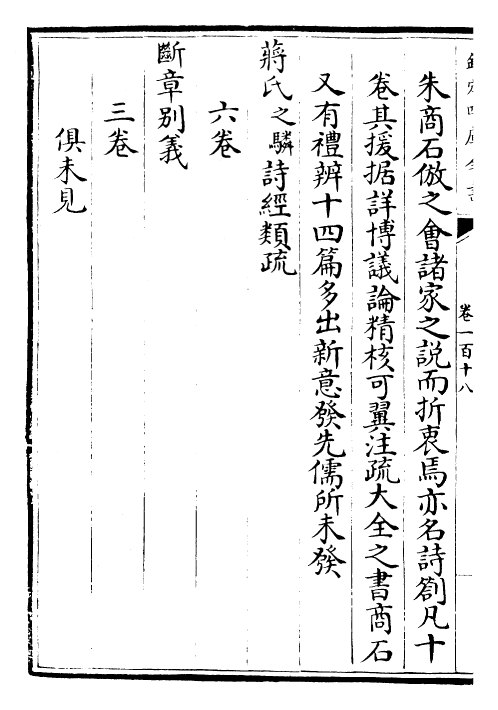 欽定四庫全書
卷一百十八
朱商石倣之會諸家之説而折衷焉亦名詩劄凡十
卷其援据詳博議論精核可翼注疏大全之書商石
又有禮辨十四篇多出新意發先儒所未發
蔣氏之驎詩經類疏
六卷
斷章别義
三卷
俱未見